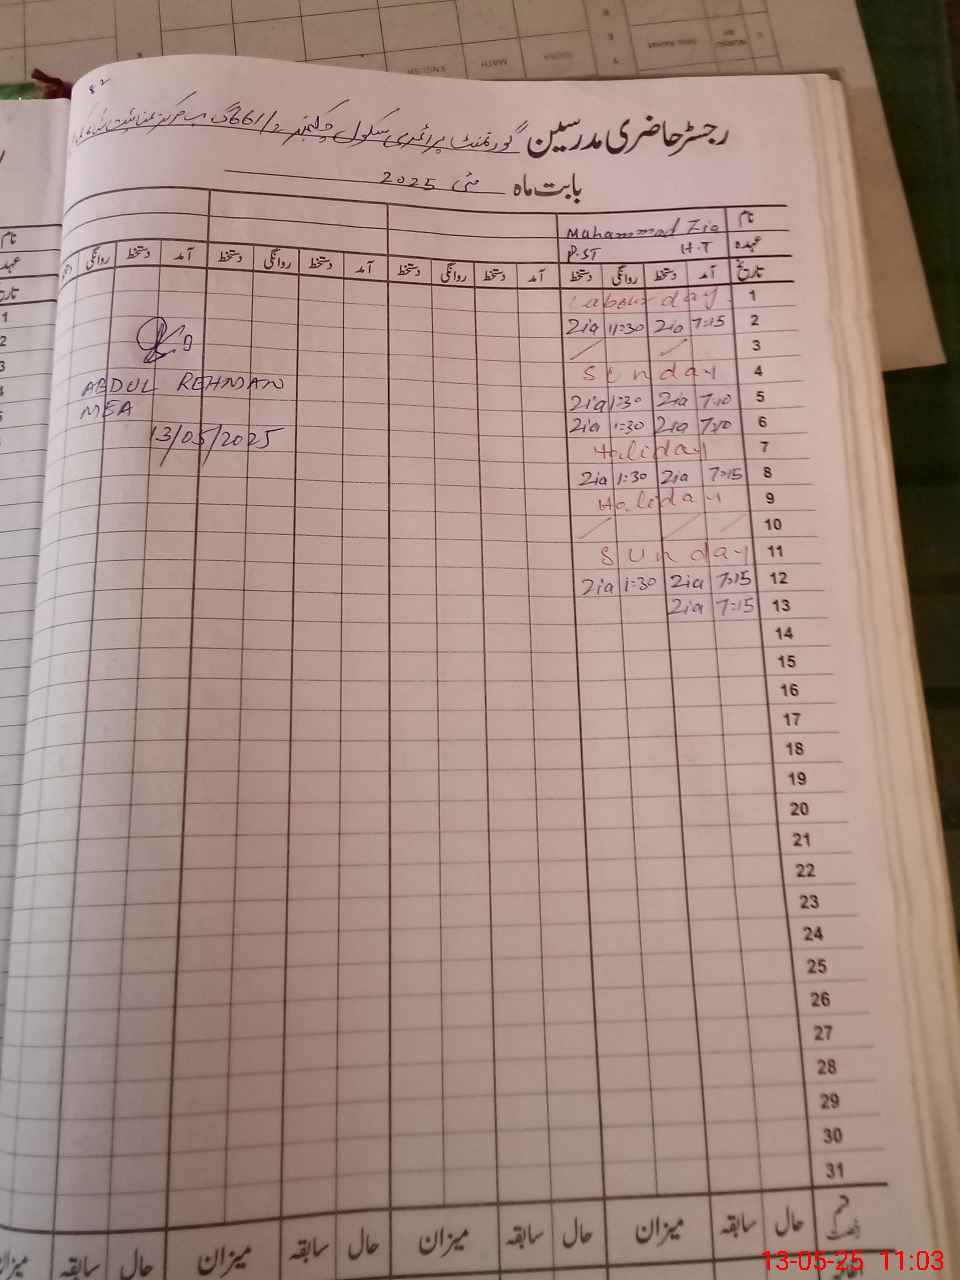 رجسٹر حاضری مدرسین گورنمنٹ پرائمری سکول چکنمبر 661/ گ ب مرکز
بابت ماہ مئی 2025
نام Muhammad Zia
عہدہ H.T P.ST
تاریخ آمد دستخط روانگی دستخط آمد دستخط روانگی دستخط آمد دستخط روانگی دستخط آمد دستخط روانگی
1 Labour day
2 7:15 Zia 11:30 Zia
3
4 Sunday
5 7:10 Zia 1:30 Zia
6 7:10 Zia 1:30 Zia
7 Holiday
8 7:15 Zia 1:30 Zia
9 Holiday
10
11 Sunday
12 7:15 Zia 1:30 Zia
13 7:15 Zia
14
15
16
17
18
19
20
21
22
23
24
25
26
27
28
29
30
31
حال سابقہ میزان حال سابقہ میزان حال سابقہ میزان حال سابقہ میزان
ABDUL REHMAN
MEA
13/05/2025
MATH
ENGLISH
13-05-25 11:03